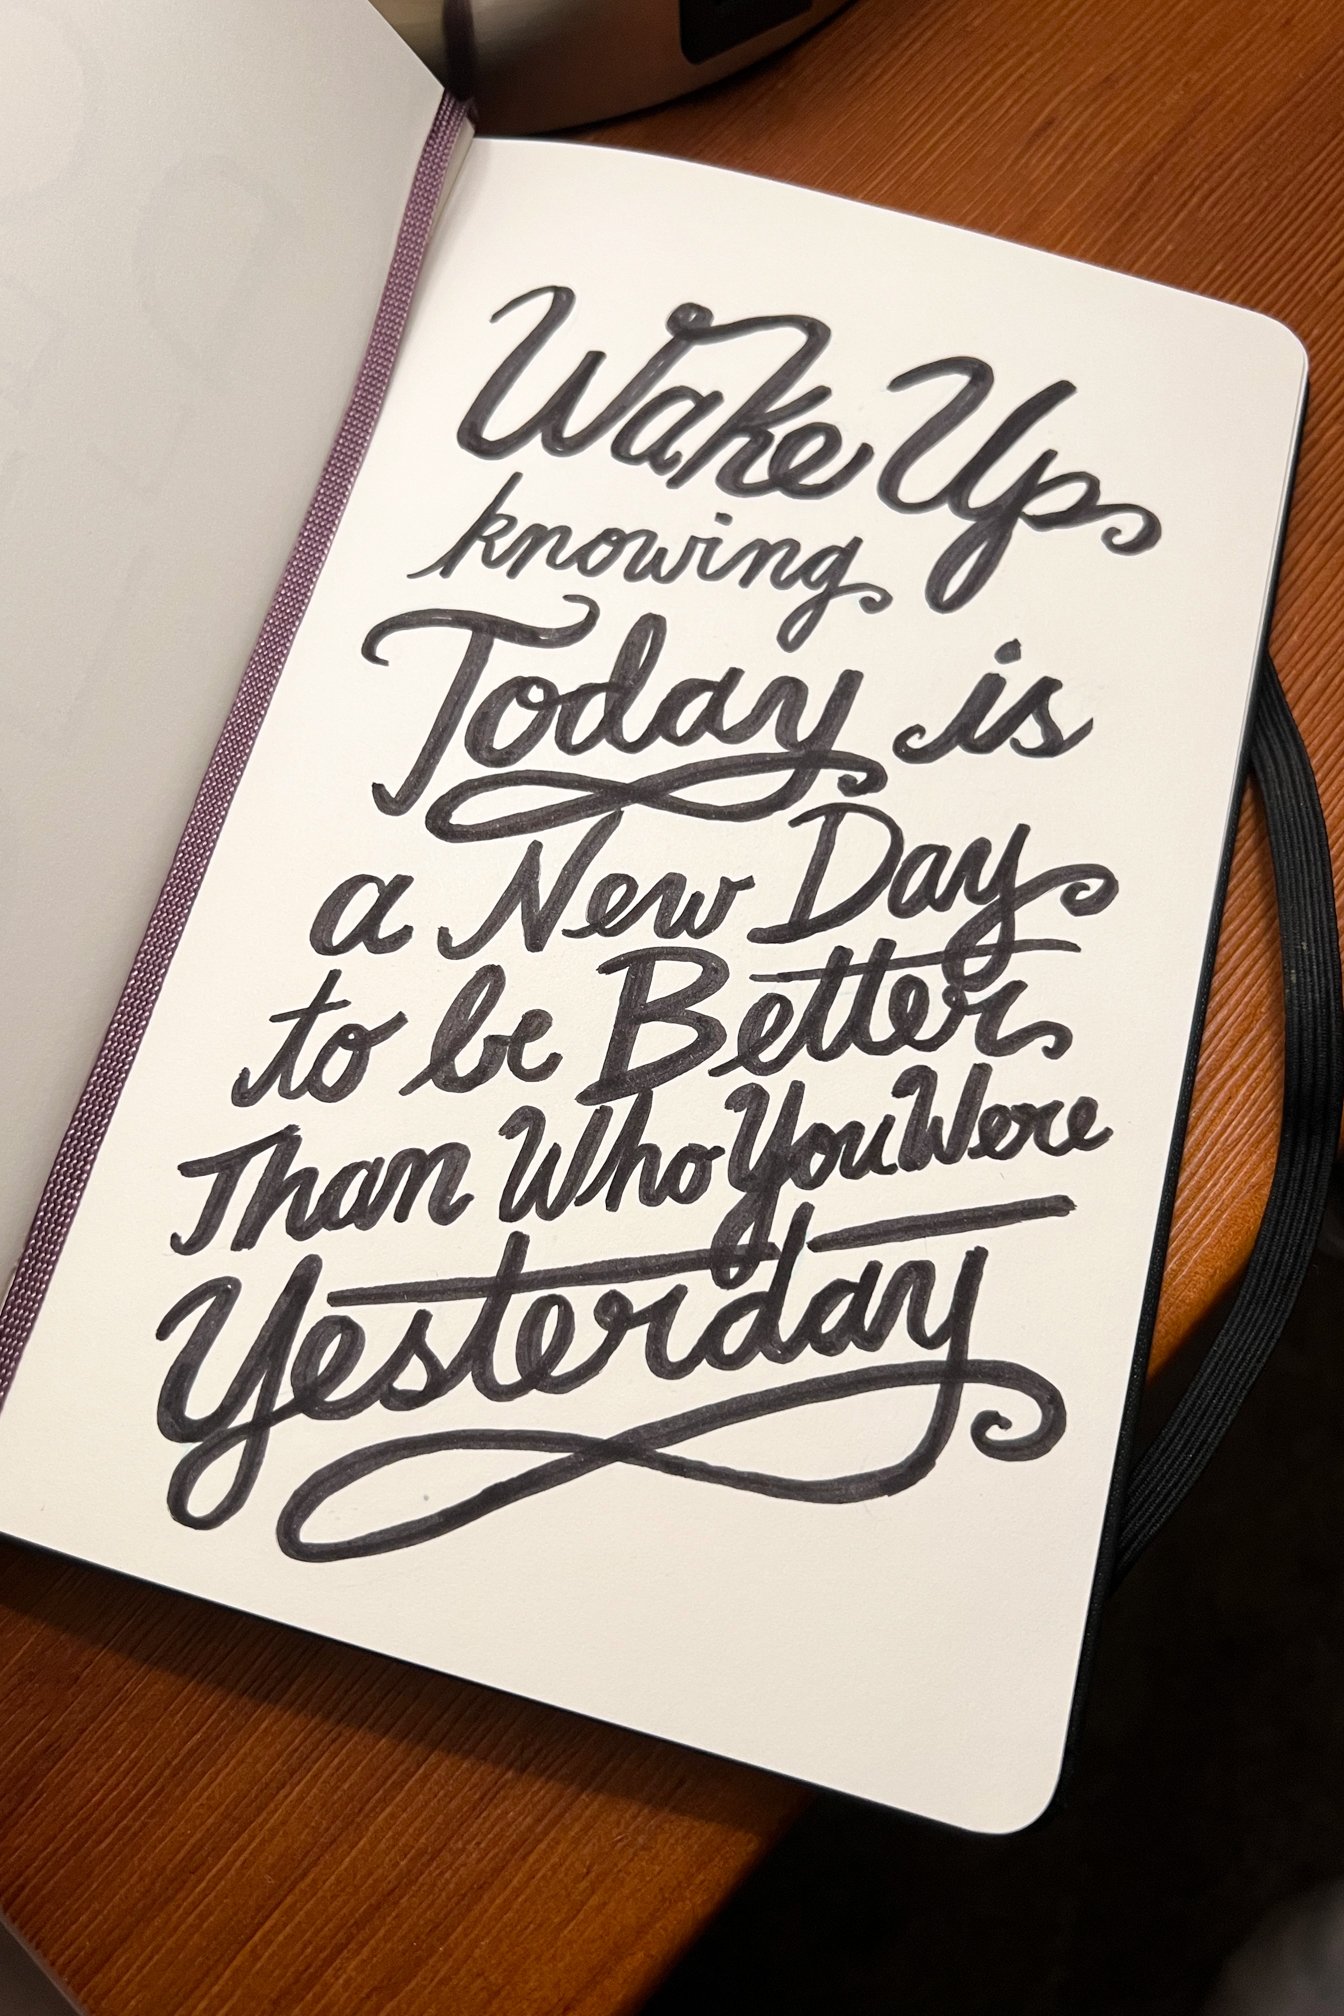 Wake Up
knowing
Today is
a New Day
to be Better
Than Who You Were
Yesterday